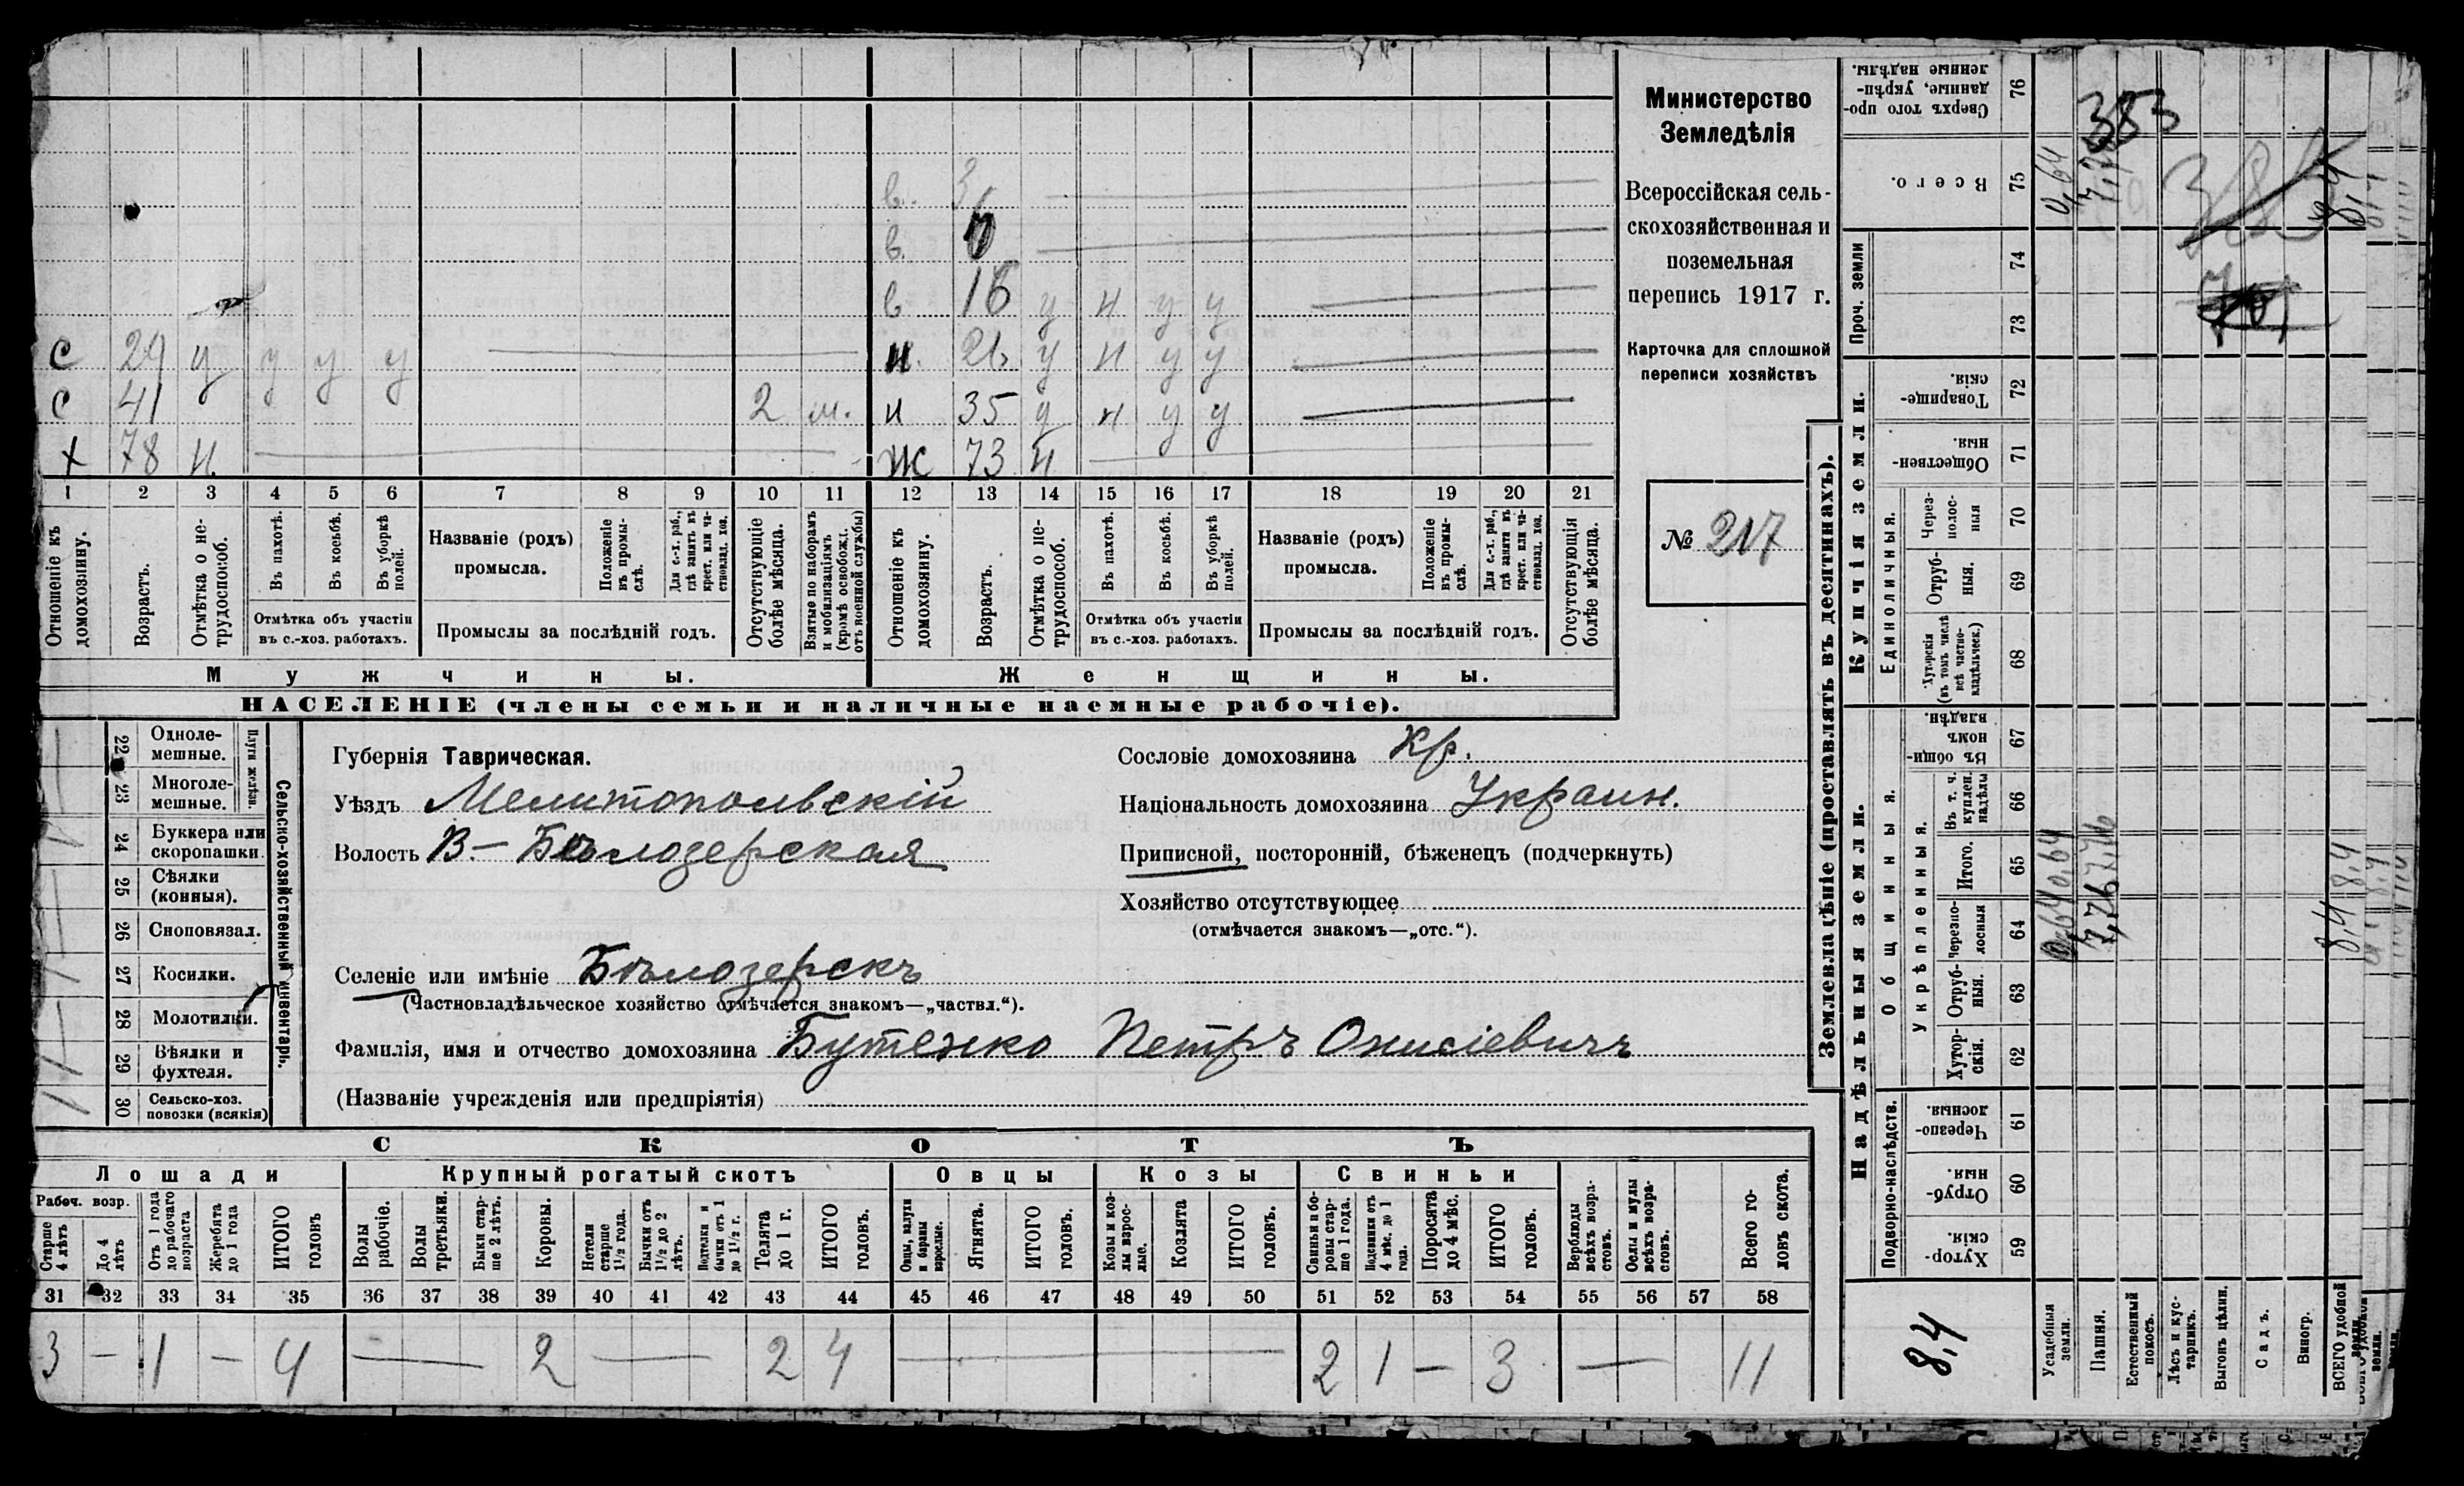 Министерство
Земледѣлія
Всероссійская сель-
скохозяйственная и
поземельная
перепись 1917 г.
Карточка для сплошной
переписи хозяйствъ
№ 217
383
в.
в.
в 16 у н у у
с 29 у у у у
н. у н у у
с 41 2 м.
н 35 у н у у
х 78 н.
ж 73 н
1 2 3 4 5 6 7 8 9 10 11 12 13 14 15 16 17 18 19 20 21
Отношеніе къ домохозяину.
Возрастъ.
Отмѣтка о не-трудоспособ.
Въ пахотѣ.
Въ косьбѣ.
Въ уборкѣ полей.
Отмѣтка объ участіи
въ с.-хоз. работахъ.
Названіе (родъ)
промысла.
Положеніе въ промы-слѣ.
Для с.-х. раб., гдѣ занятъ въ крест. или ча-стновлад. хоз.
Промыслы за послѣдній годъ.
Отсутствующіе болѣе мѣсяца.
Взятые по наборамъ и мобилизаціямъ (кромѣ освобожд. отъ военной службы)
Отношеніе къ домохозяину.
Возрастъ.
Отмѣтка о не-трудоспособ.
Въ пахотѣ.
Въ косьбѣ.
Въ уборкѣ полей.
Отмѣтка объ участіи
въ с.-хоз. работахъ.
Названіе (родъ)
промысла.
Положеніе въ промы-слѣ.
Для с.-х. раб., гдѣ занята въ крест. или ча-стновлад. хоз.
Промыслы за послѣдній годъ.
Отсутствующія болѣе мѣсяца.
Мужчины.
Женщины.
НАСЕЛЕНІЕ (члены семьи и наличные наемные рабочіе).
22 Однолемешные.
23 Многолемешные.
Плуги желѣзн.
24 Буккера или скоропашки.
25 Сѣялки (конныя).
26 Сноповязал.
27 Косилки.
28 Молотилки.
29 Вѣялки и фухтеля.
30 Сельско-хоз. повозки (всякія)
Сельско-хозяйственный инвентарь.
Губернія Таврическая.
Уѣздъ Мелитопольскій
Волость В.- Бѣлозерская
Сословіе домохозяина Кр.
Національность домохозяина Украин.
Приписной, посторонній, бѣженецъ (подчеркнуть)
Хозяйство отсутствующее
(отмѣчается знакомъ—„отс.“).
Селеніе или имѣніе Бѣлозерскъ
(Частновладѣльческое хозяйство отмѣчается знакомъ—„частвл.“).
Фамилія, имя и отчество домохозяина Бутенко Петръ Онисіевичъ
(Названіе учрежденія или предпріятія)
СКОТЪ
Лошади
Крупный рогатый скотъ
Овцы
Козы
Свиньи
Рабоч. возр.
Старше 4 лѣтъ
До 4 лѣтъ
Отъ 1 года до рабочаго возраста
Жеребята до 1 года
ИТОГО головъ
Волы рабочіе.
Волы третьяки.
Быки стар-ше 2 лѣтъ.
Коровы.
Нетели старше 1½ года.
Бычки отъ 1½ до 2 лѣтъ.
Подтелки и бычки отъ 1 до 1½ г.
Телята до 1 г.
ИТОГО головъ.
Овцы, валухи и бараны взрослые.
Ягнята.
ИТОГО головъ.
Козы и коз-лы взрос-лые.
Козлята
ИТОГО головъ.
Свиньи и бо-ровы стар-ше 1 года.
Подсвинки отъ 4 мѣс. до 1 года.
Поросята до 4 мѣс.
ИТОГО головъ.
Верблюды всѣхъ возра-стовъ.
Ослы и мулы всѣхъ возра-стовъ.
Всего го-ловъ скота.
31 32 33 34 35 36 37 38 39 40 41 42 43 44 45 46 47 48 49 50 51 52 53 54 55 56 57 58
3 — 1 — 4 — 2 — 2 4 — 2 1 — 3 — 11
Землевладѣніе (проставлять въ десятинахъ).
Надѣльныя земли.
Купчія земли.
Проч. земли
Подворно-наслѣдств.
Общинныя.
Укрѣпленныя.
Единоличныя.
59 Хутор-скія.
60 Отруб-ныя.
61 Черезпо-лосныя.
62 Хутор-скія.
63 Отруб-ныя.
64 Черезпо-лосныя
65 Итого.
66 Въ т. ч. куплен. надѣлы
67 Въ общи-номъ владѣн.
68 Хуторскія (въ томъ числѣ всѣ частно-владѣльческ.)
69 Отруб-ныя.
70 Через-полос-ныя
71 Обществен-ныя.
72 Товарище-скія.
73
74
75 Всего.
76 Сверхъ того про-данные, укрѣп-ленные надѣлы.
8,4
Усадебныя земли. 0,64 0,64 0,64
Пашня. 7,76
Естественный покосъ.
Лѣсъ и кус-тарникъ.
Выгонъ цѣлин.
Садъ.
Виногр.
ВСЕГО удобной земли. 8,4 8,4 8,4